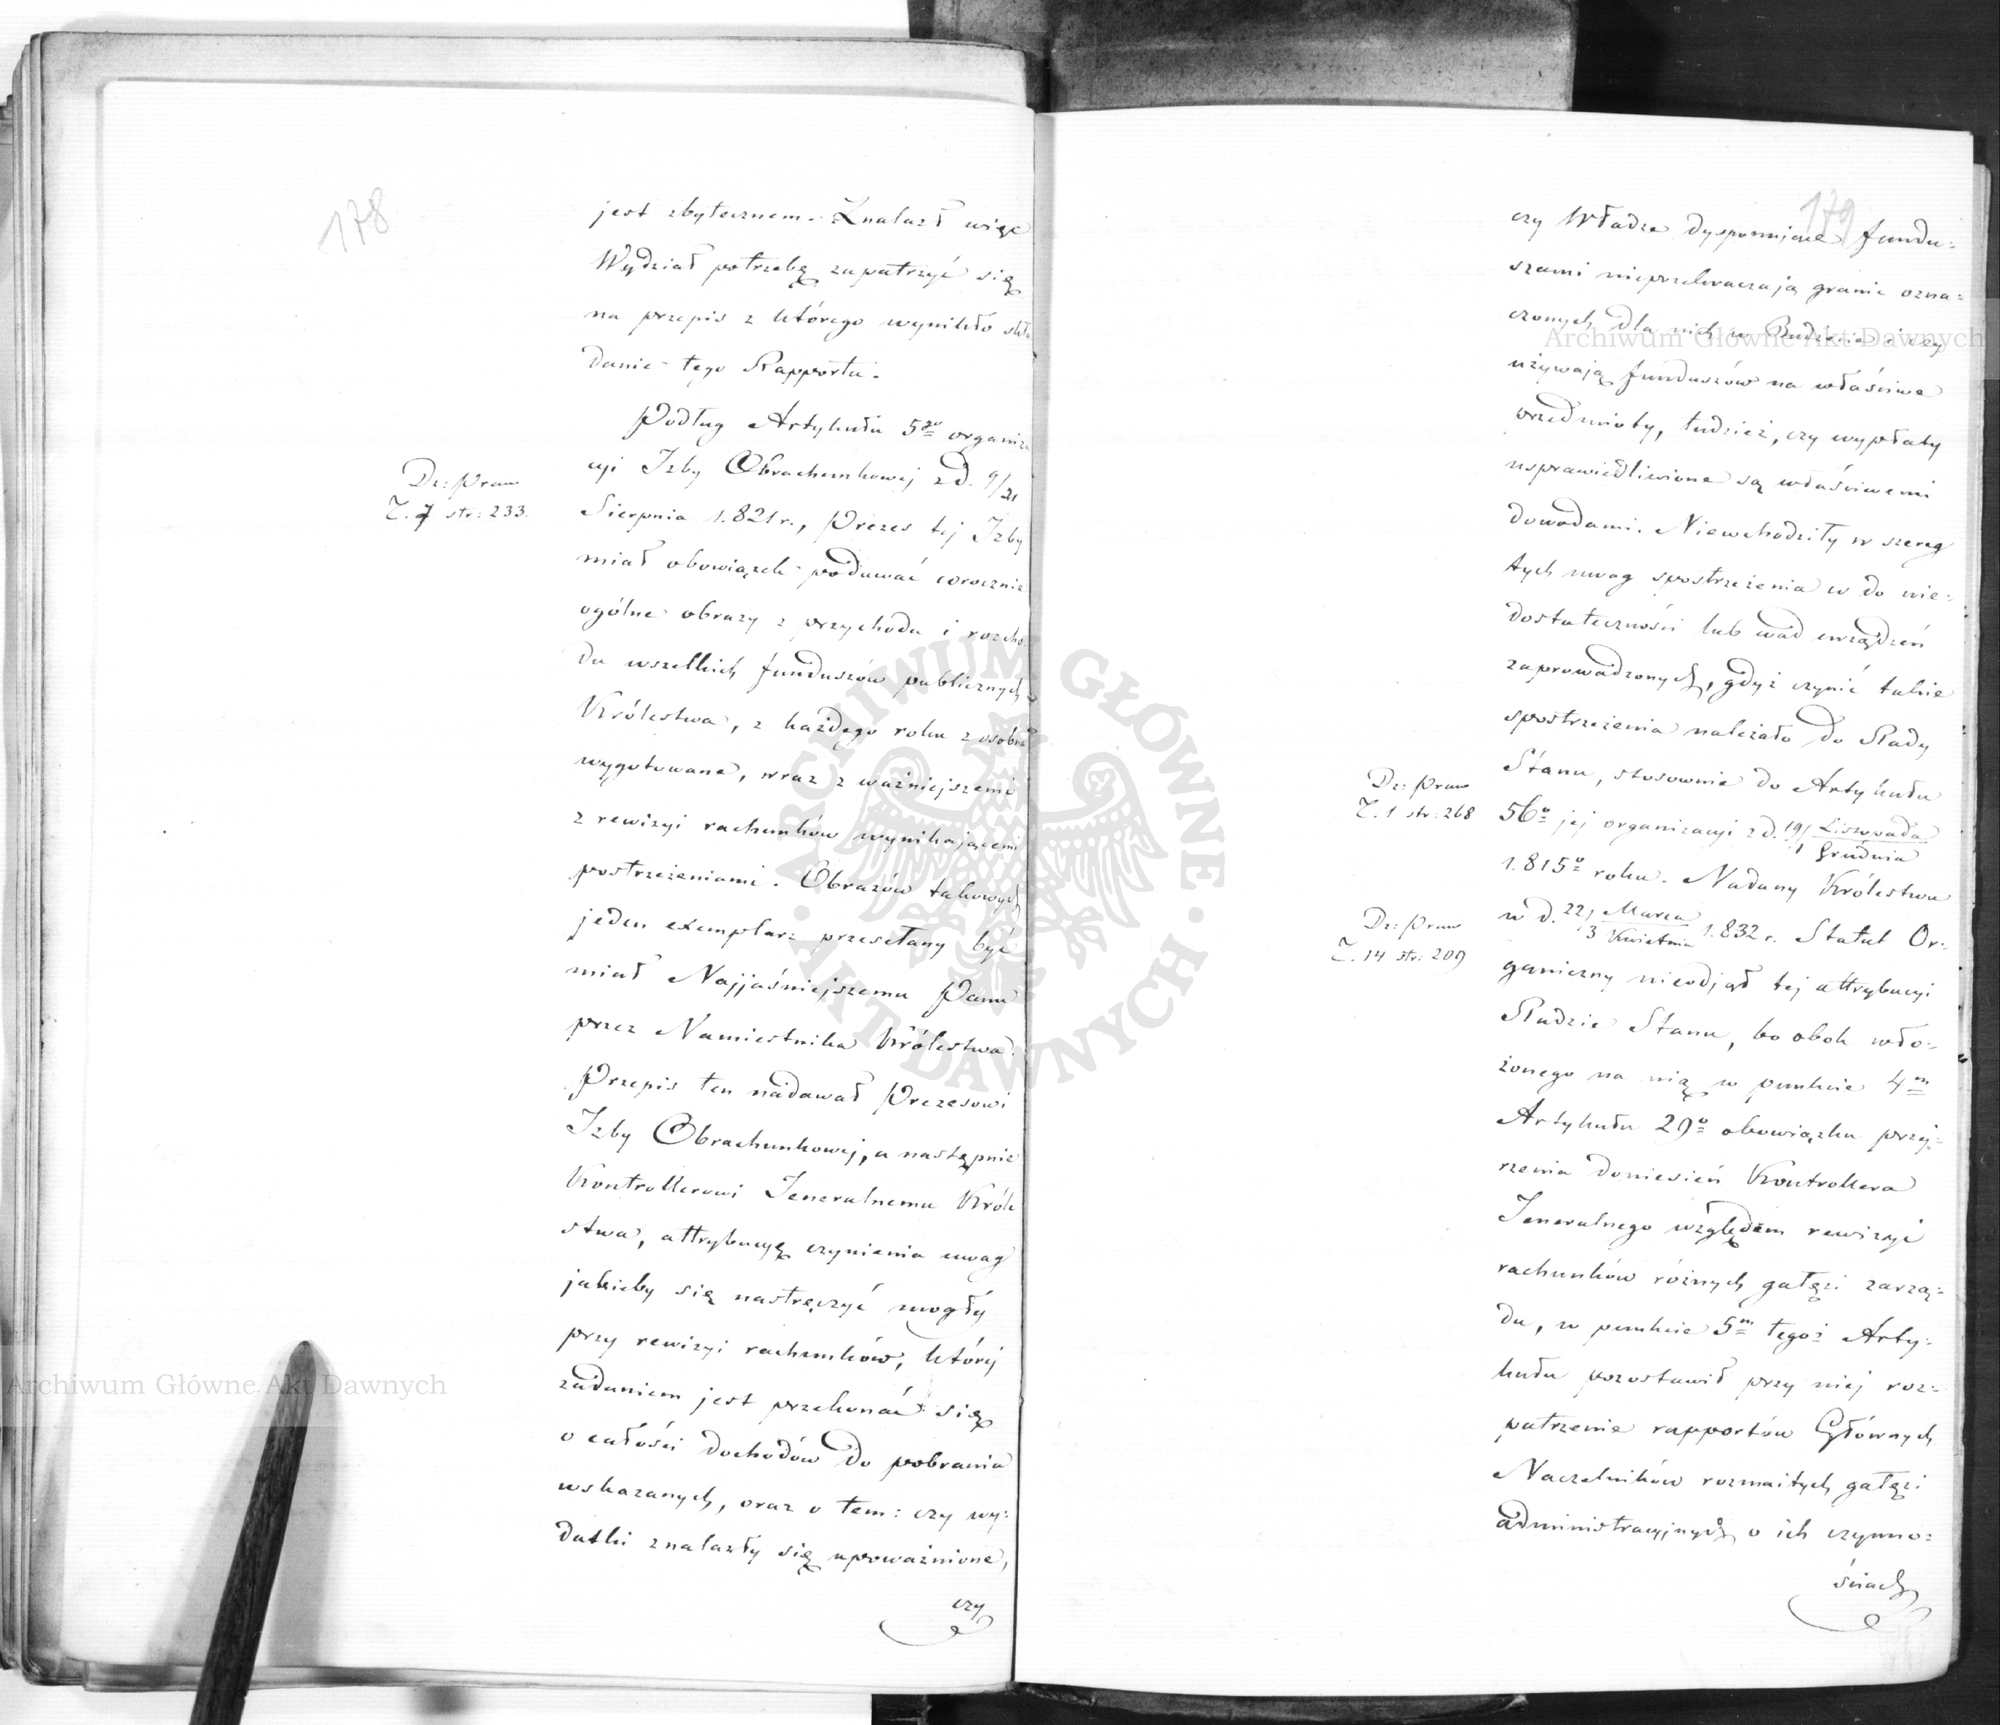 178
jest zbytecznem. Znalazł więc
Wydział potrzebę zapatrzyć się
na przepis z którego wynikło skła
danie tego Rapportu.
Podług Artykułu 5go organiza
cyi Izby Obrachunkowej z d. 9/21
Dz: Praw
T. 7 str: 233.
Sierpnia 1.821 r., Prezes tej Izby
miał obowiązek podawać corocznie
ogólne obrazy z przychodu i rozcho
du wszelkich funduszów publicznych
Królestwa, z każdego roku z osobna
wygotowane, wraz z ważniejszemi
z rewizyi rachunków wynikającemi
postrzeżeniami. Obrazów takowych
jeden exemplarz przesełany być
miał Najjaśniejszemu Panu
przez Namiestnika Królestwa.
Przepis ten nadawał Prezesowi
Izby Obrachunkowej, a następnie
Kontrollerowi Jeneralnemu Króle
stwa, attrybucyę czynienia uwag
jakieby się nastręczyć mogły
przy rewizyi rachunków, której
zadaniem jest przekonać się
o całości dochodów do pobrania
wskazanych, oraz o tem: czy wy:
datki znalazły się upoważnione,
czy
179
czy Władze dysponujące fundu:
szami nieprzekraczają granic ozna:
czonych dla nich w Budżecie i czy
używają funduszów na właściwe
przedmioty, tudzież, czy wypłaty
usprawiedliwione są właściwemi
dowodami. Niewchodziły w szereg
tych uwag spostrzeżenia w do nie:
dostateczności lub wad urządzeń
zaprowadzonych, gdyż czynić takie
spostrzeżenia należało do Rady
Stanu, stosownie do Artykułu
Dz: Praw
T. 1 str: 268
56o jej organizacyi z d. 19/1 Listopada/Grudnia
1.815o roku. Nadany Królestwu
Dz: Praw
T. 14 str: 209
w d. 22/3 Marca/Kwietnia 1.832 r. Statut Or:
ganiczny nieodjął tej attrybucyi
Radzie Stanu, bo obok wło:
żonego na nią w punkcie 4m
Artykułu 29o obowiązku przej:
rzenia doniesień Kontrollera
Jeneralnego względem rewizyi
rachunków różnych gałęzi zarzą:
du, w punkcie 5m tegoż Arty:
kułu pozostawił przy niej roz:
patrzenie rapportów Głównych
Naczelników rozmaitych gałęzi
administracyjnych o ich czynno:
ściach
Archiwum Główne Akt Dawnych
Archiwum Główne Akt Dawnych
ARCHIWUM GŁÓWNE AKT DAWNYCH